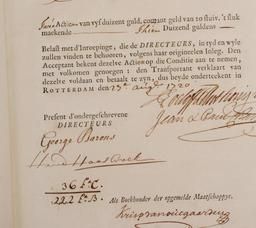 Twee Actien van vyf duizent guld, courant geld van 20 stuiv. 't stuk
maekende Thien Duizend guldens
Belast met d'Inroepinge, die de DIRECTEURS, in tyd en wyle
zullen vinden te behooren, volgens haar origineelen Inleg. Den
Acceptant bekent dezelve Actien op die Conditie aan te nemen,
met volkomen genoegen: den Transportant verklaart van
dezelve voldaan en betaalt te zyn, dus beyde onderteekent in
ROTTERDAM den 23e augt 1720
Present d'ondergeschrevene
DIRECTEURS
George Barons
36 f°. C.
222 f°. B.
Als Boekhouder der opgemelde Maatschappye.